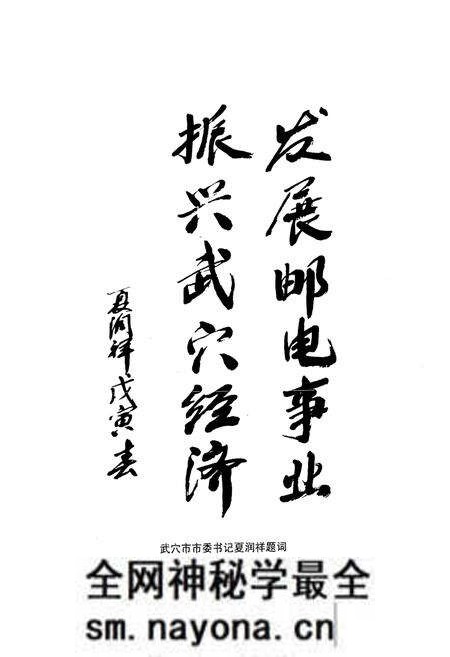 发展邮电事业
振兴武穴经济
夏润祥戊寅春
武穴市市委书记夏润祥题词
全网神秘学最全
sm.nayona.cn